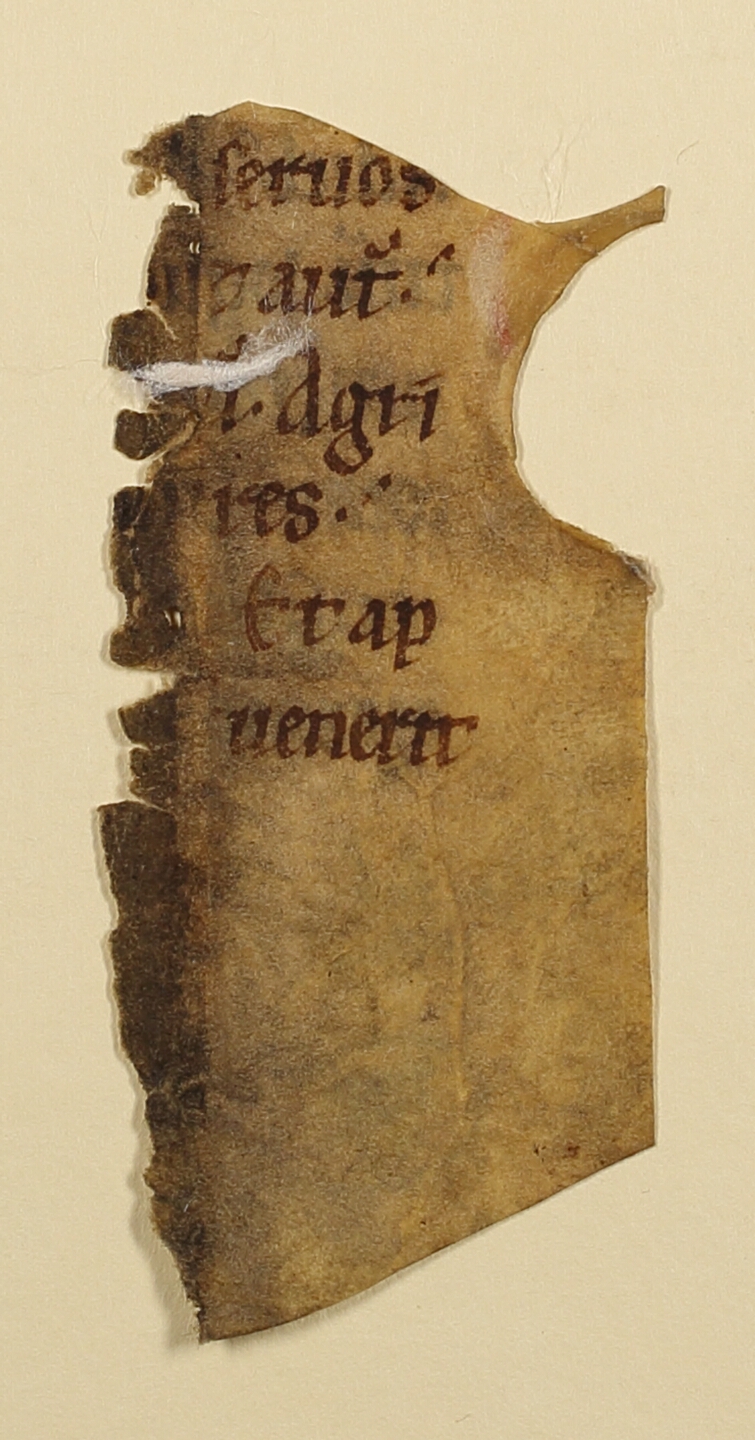 seruos
aut̃.
Agri
ies.
Et ap
uenerīt